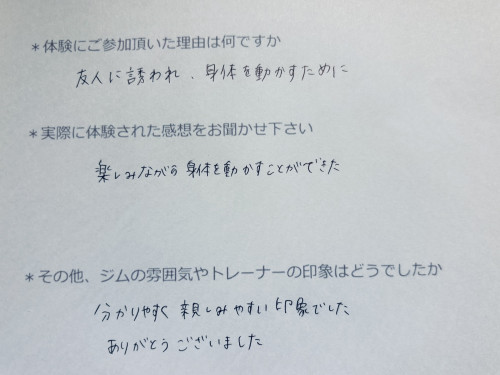 ＊体験にご参加頂いた理由は何ですか
友人に誘われ、身体を動かすために
＊実際に体験された感想をお聞かせ下さい
楽しみながら身体を動かすことができた
＊その他、ジムの雰囲気やトレーナーの印象はどうでしたか
分かりやすく親しみやすい印象でした
ありがとうございました